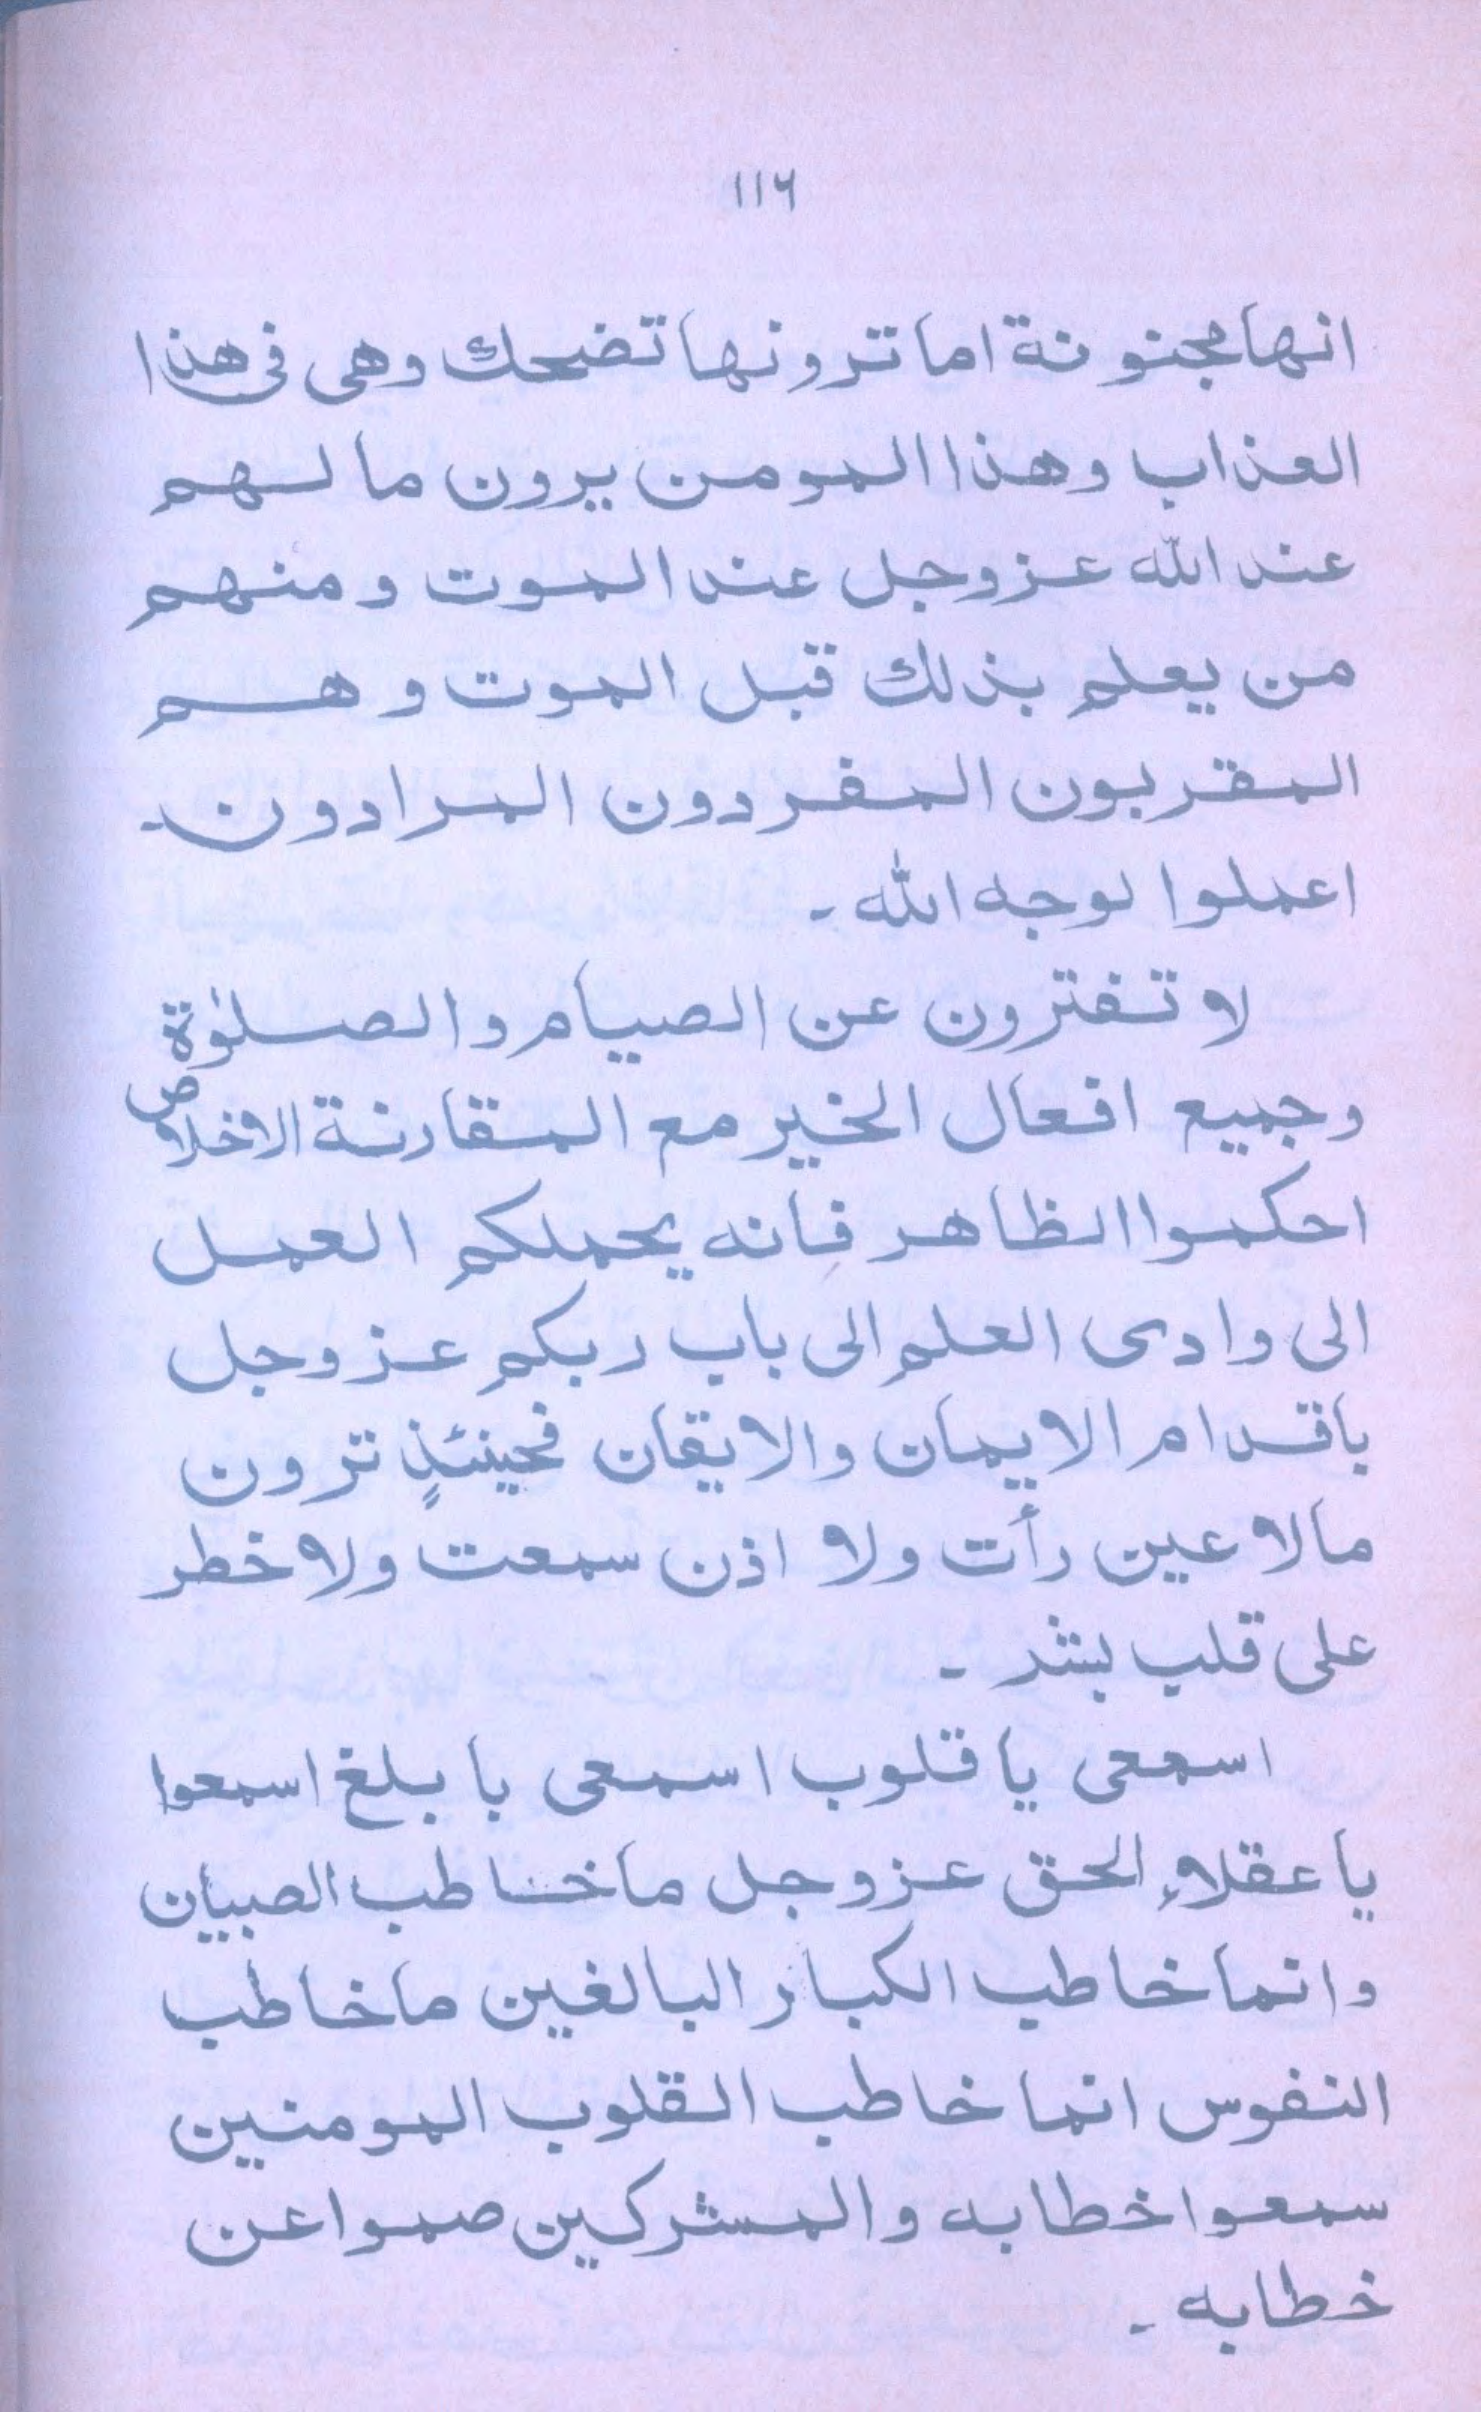 ۱۱۶
انها مجنونة اما ترونها تضحك وهى فى هذا
العذاب وهذا المومن يرون ما لهم
عند الله عزوجل عند الموت ومنهم
من يعلم بذلك قبل الموت وهم
المقربون المفردون المرادون۔
اعملوا لوجه الله ۔
لا تفترون عن الصيام والصلوٰة
وجميع افعال الخير مع المقارنة الاخلاص
احكموا الظاهر فانه يحملكم العمل
الى وادى العلم الى باب ربكم عزوجل
باقدام الايمان والايقان فحينئذٍ ترون
مالا عين رأت ولا اذن سمعت ولا خطر
على قلب بشر ۔
اسمعى يا قلوب اسمعى با بلغ اسمعوا
يا عقلاءِ الحق عزوجل ما خاطب الصبيان
وانما خاطب الكبار البالغين ما خاطب
النفوس انما خاطب القلوب المومنين
سمعوا خطابه والمشركين صموا عن
خطابه ۔